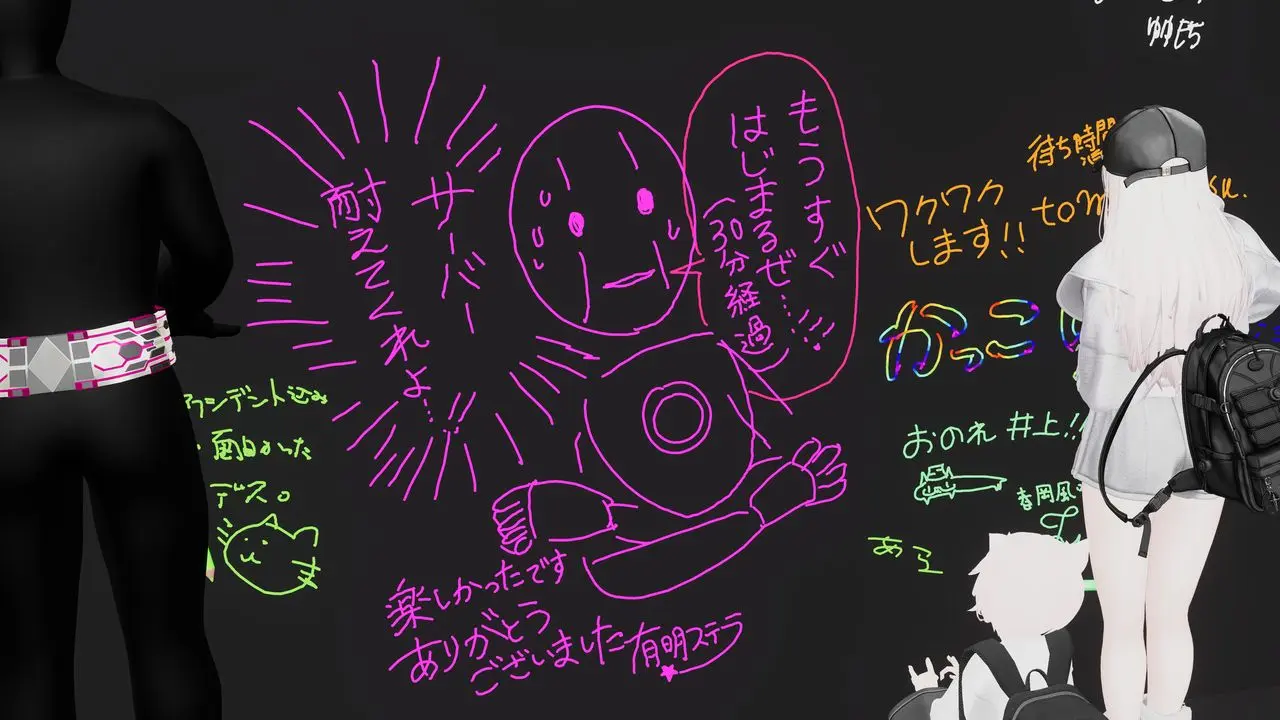 ゆゆもち
待ち時間
ワクワク
します!!
もうすぐ
はじまるぜ…
(30分経過)
サーバー
耐えてくれよ…!!
かっこ
おのれ 井上!!
アクシデント込み
面白かった
デス。
楽しかったです
ありがとう
ございました
有明ステラ